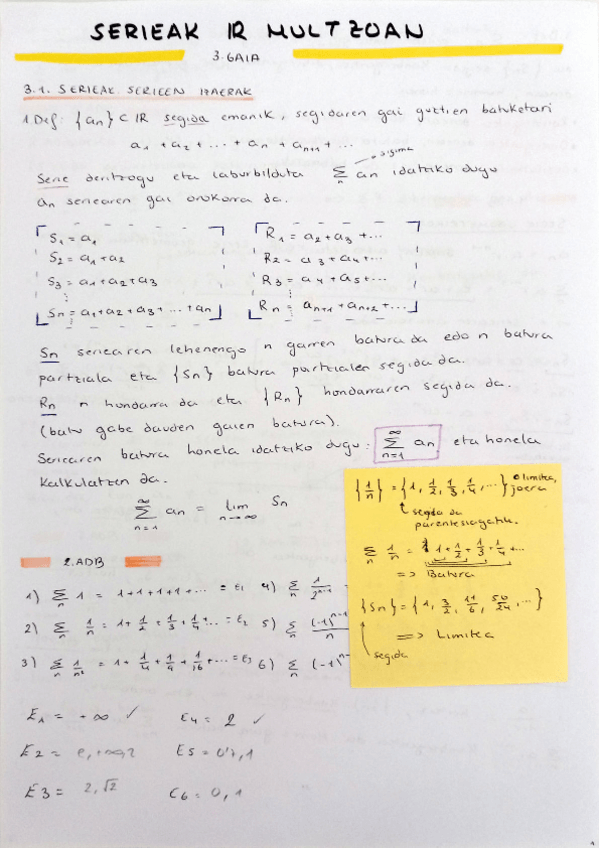 SERIEAK IR MULTZOAN
3. GAIA
3.1. SERIEAK. SERIEEN IZAERAK
1. Def: {an} ⊂ IR segida emanik, segidaren gai guztien batuketari
a1 + a2 + ... + an + an+1 + ...
Serie deritzogu eta laburbilduta Σn an idatziko dugu → sigma
an seriearen gai orokorra da.
S1 = a1
S2 = a1 + a2
S3 = a1 + a2 + a3
Sn = a1 + a2 + a3 + ... + an
R1 = a2 + a3 + ...
R2 = a3 + a4 + ...
R3 = a4 + a5 + ...
Rn = an+1 + an+2 + ...
Sn seriearen lehenengo n garren batura da edo n batura
partziala eta {Sn} batura partzialen segida da.
Rn n hondarra da eta {Rn} hondarraren segida da.
(batu gabe dauden gaien batura).
Seriearen batura honela idatziko dugu: Σ∞n=1 an eta honela
kalkulatzen da.
Σ∞n=1 an = lim n→∞ Sn
{1/n} = {1, 1/2, 1/3, 1/4, ...} 0 limitea, joera
↑ segida da
parentesiagatik.
Σn 1/n = 1 + 1/2 + 1/3 + 1/4 + ...
=> Batura
{Sn} = {1, 3/2, 11/6, 50/24, ...}
=> Limitea
segida
2. ADB
1) Σn 1 = 1+1+1+1+ ... = E1 4) Σn 1/2^n-1
2) Σn 1/n = 1 + 1/2 + 1/3 + 1/4 + ... = E2 5) Σn (-1)^n-1
3) Σn 1/n² = 1 + 1/4 + 1/9 + 1/16 + ... = E3 6) Σn (-1)^n-
E1 = +∞ ✓ E4 = 2 ✓
E2 = E5 =
E3 = 2, √2 E6 = 0, 1